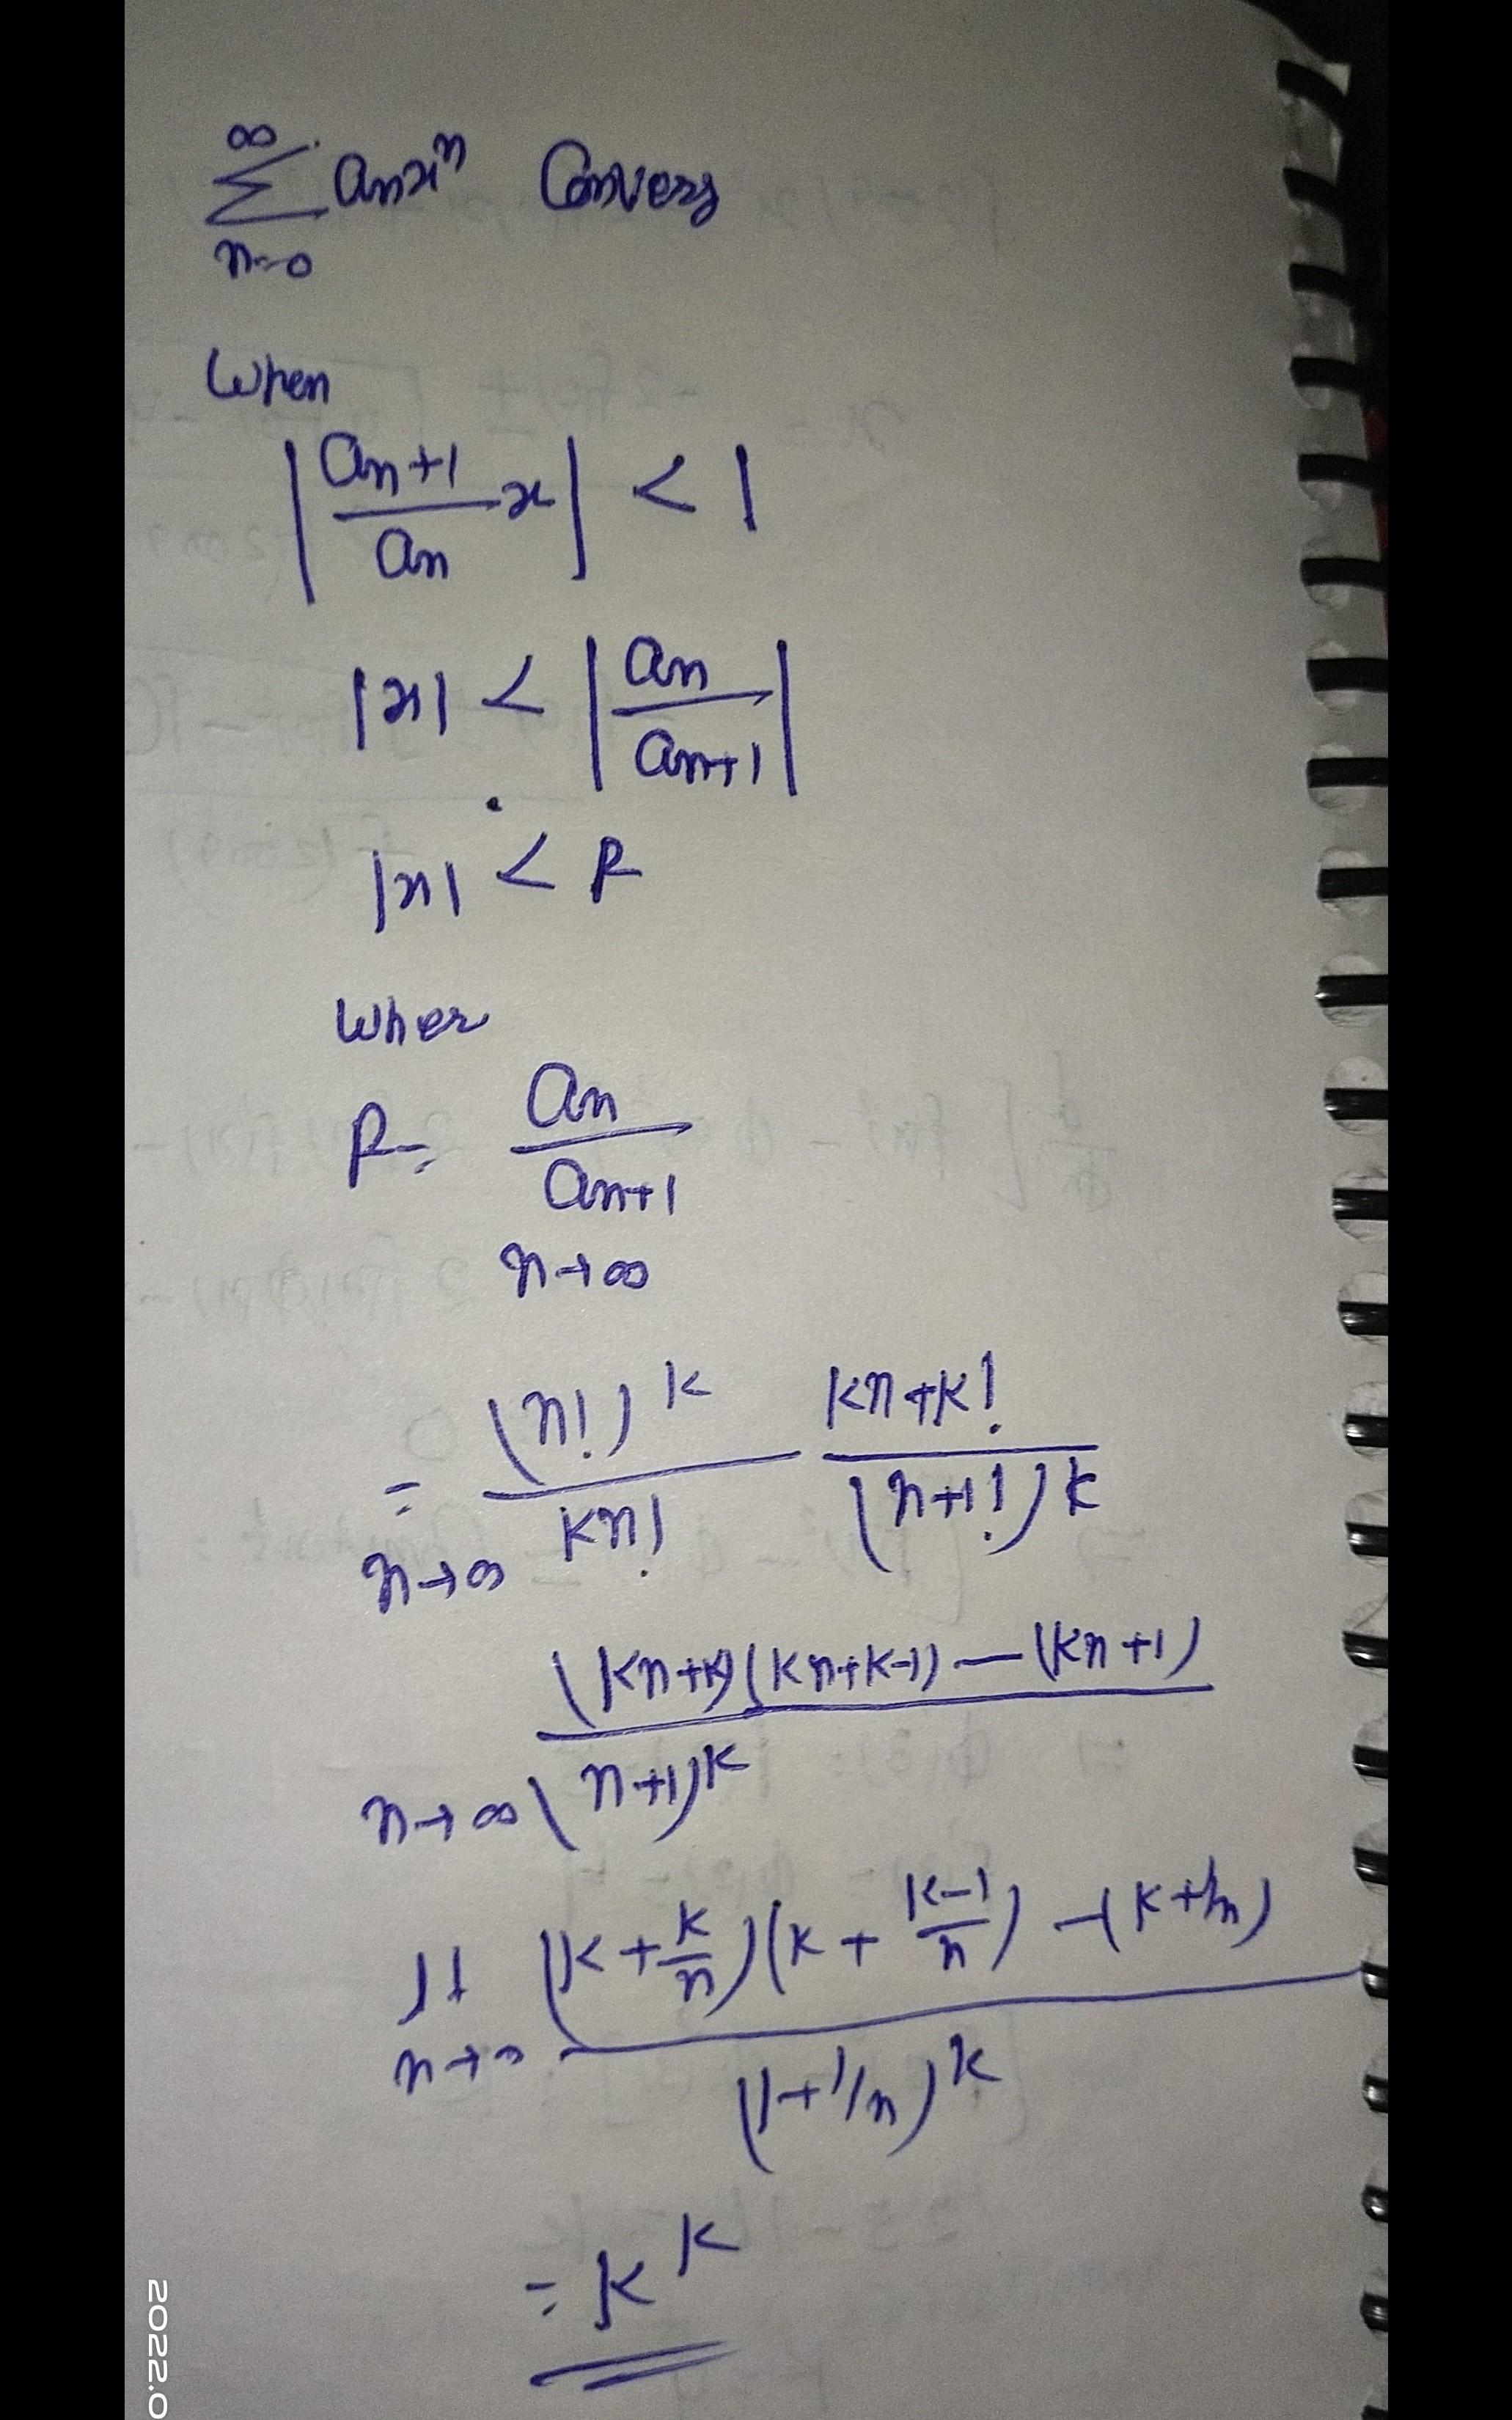 ∞
∑ anxⁿ Convers
n=0
When
|an+1/an x| < 1
|x| < |an/an+1|
|x| < R
Wher
R = an/an+1
n→∞
= (n!)^k/kn! kn+k!/(n+1!)^k
n→∞
(kn+k)(kn+k-1) — (kn+1)/(n+1)^k
n→∞
lt (k+k/n)(k+k-1/n) — (k+1/n)/(1+1/n)^k
n→∞
= k^k
2022.0